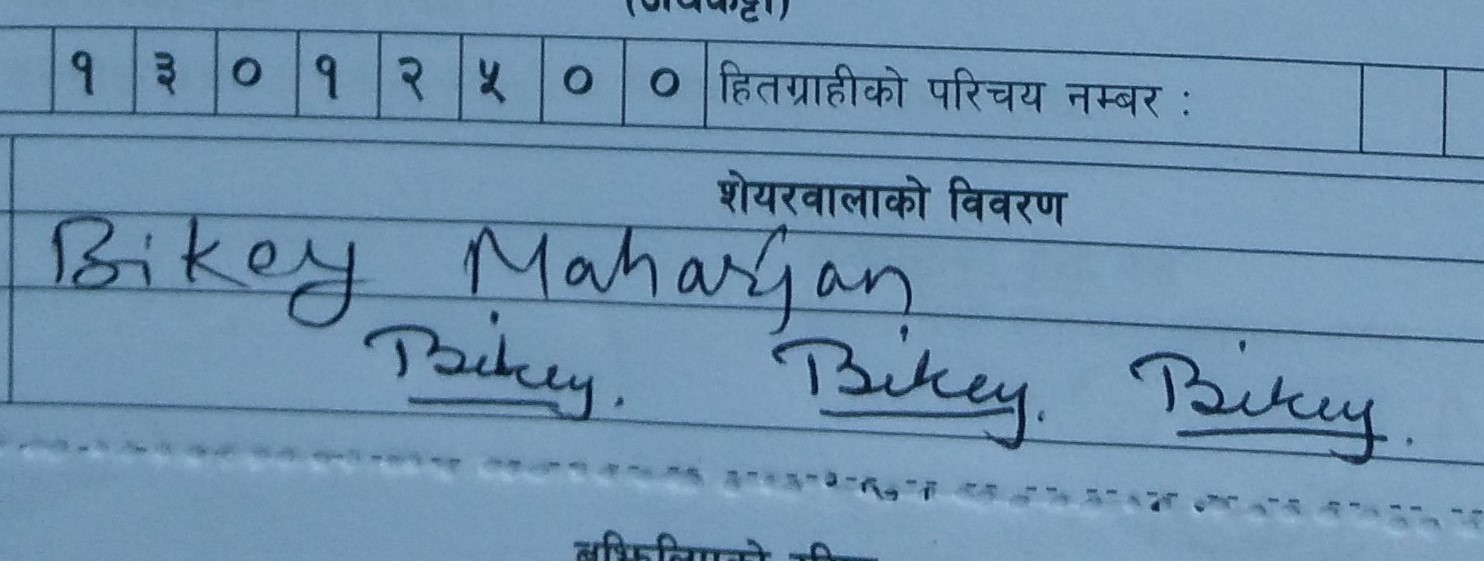 १ ३ ० १ २ ५ ० ० हितग्राहीको परिचय नम्बर :
शेयरवालाको विवरण
Bikey Maharjan
Bikey. Bikey. Bikey.